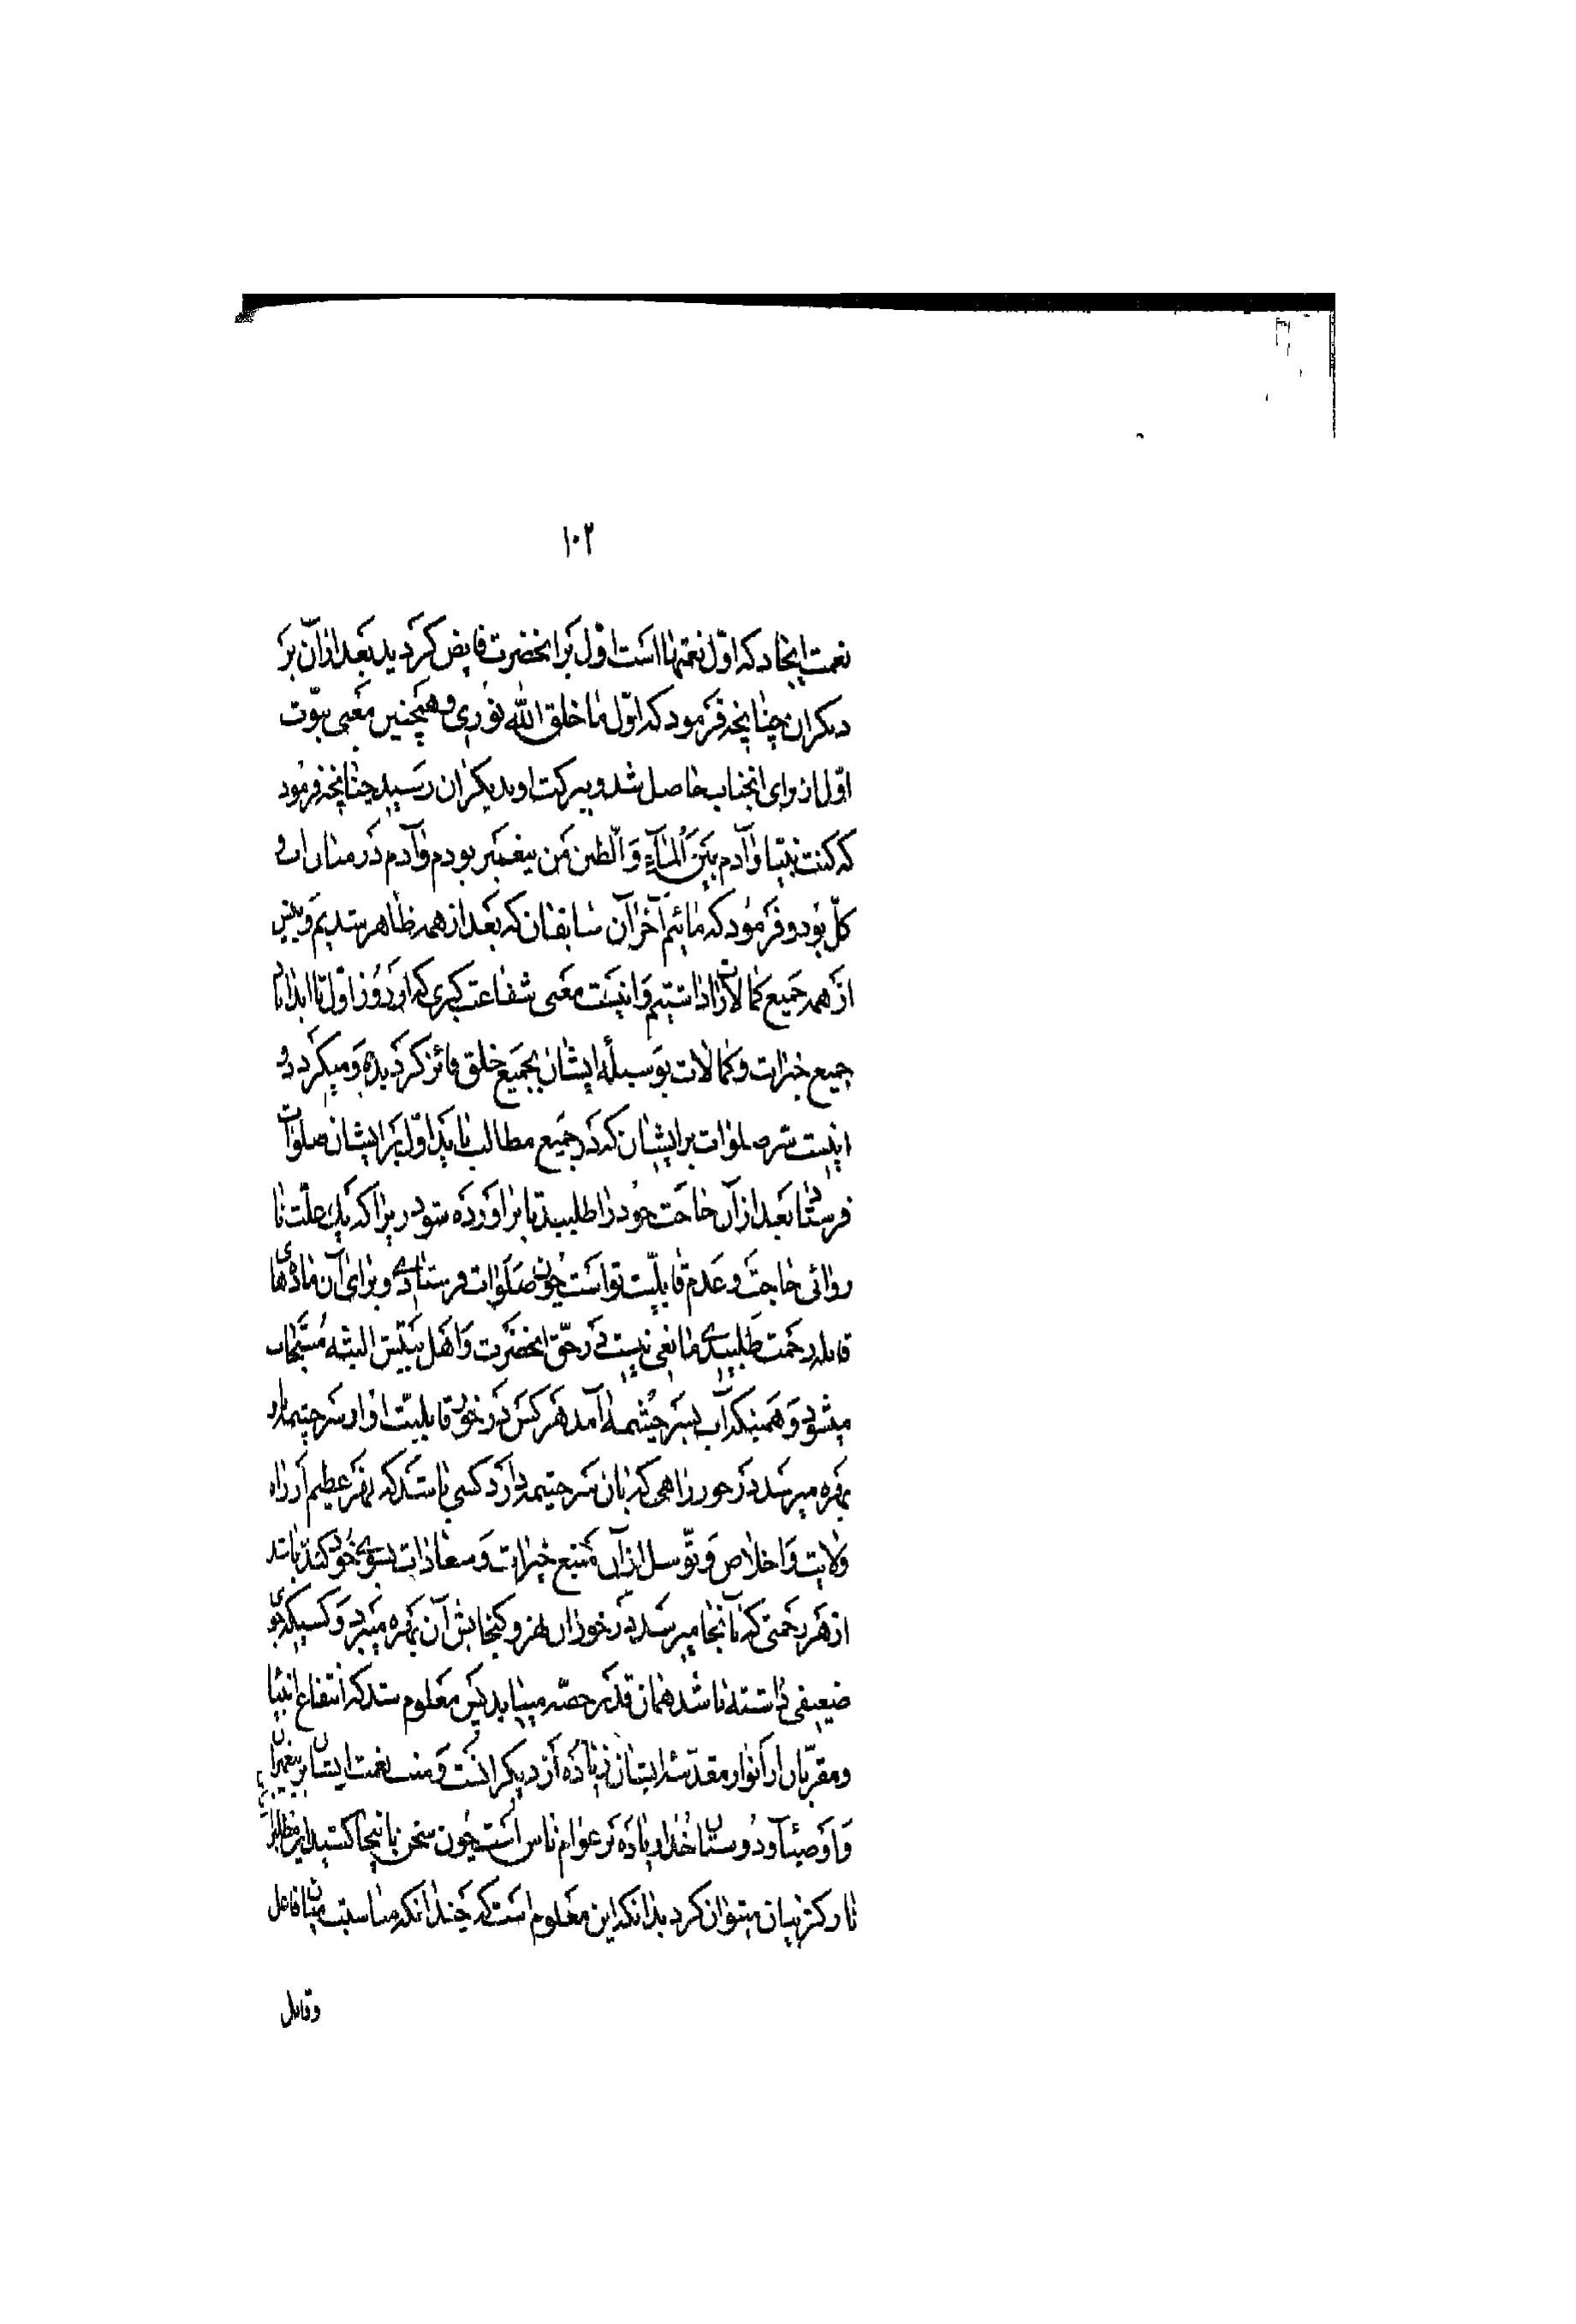 ۱۰۲
نعمت ایجاد که اوّل نعمتها است اوّل بر انحضرت فایض کردید بعد از آن بر
دیکران چنانچه فرمود که اوّل ما خلق الله نوری و همچنین معنی نبوّت
اوّل از برای انجناب حاصل شد و ببرکت او بدیکران رسید چنانچه فرمود
که کنت نبیّا و آدم بین المآء و الطین من پیغمبر بودم و آدم در میان اب و
کل بود و فرمود که مائیم آخران سابقان که بعد از همه ظاهر شدیم و پیش
از همه جمیع کمالات را داشتیم و اینست معنی شفاعت کبری که از روز اوّل تا ابد الاباد
جمیع خیرات و کمالات بوسیلهٔ ایشان بجمیع خلق فائز کردیده و میکردد و
اینست سر صلوات بر ایشان که در جمیع مطالب باید اوّل بر ایشان صلوات
فرستاد بعد از آن حاجت خود را طلبید تا براورده شود زیرا که یک علّت نا
روائی حاجت و عدم قابلیّت تو است چون صلوات فرستادی و برای آن ماده‌های
قابله رحمت طلبیدی مانعی نیست در حقّ انحضرت و اهل بیتش البته مستجاب
میشود و همینکه آب بسر چشمه آمد هر کس در خور قابلیّت او از سر چشمه او
بهره میرسد در خور راهی که بان سر چشمه دارد کسی باشد که نهر عظیم از راه
ولایت و اخلاص و توّسل از آن منبع خیرات و سعادات بسوی خود کنده باشد
از هر رحمتی که بآنجا میرسد در خور ان نهر و کنجایش آن بهره میبرد و کسیکه جوی
ضعیفی داشته باشد همان قدر حصّه مییابد پس معلوم شد که انتفاع انبیا
و مقرّبان از انوار مقدّسه ایشان زیاده از دیکرانست و منت نعمت ایشان بر پیغمبران
و اوصیآ و دوستان خدا زیاده بر عوام ناس است چون سخن باینجا کشید این مطلب را
نازکتر بیان میتوان کرد بدانکه این معلوم است که چندانکه مناسبت میان فاعل
و قابل